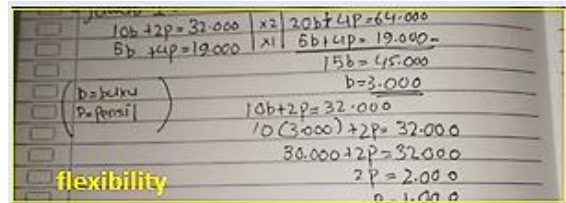 Jawab
10b + 2p = 32.000 | x2 | 20b + 4p = 64.000
5b + 4p = 19.000 | x1 | 5b + 4p = 19.000 -
15b = 45.000
b = 3.000
(b = buku
p = Pensil)
10b + 2p = 32.000
10 (3.000) + 2p = 32.000
30.000 + 2p = 32.000
2p = 2.000
p = 1.000
flexibility